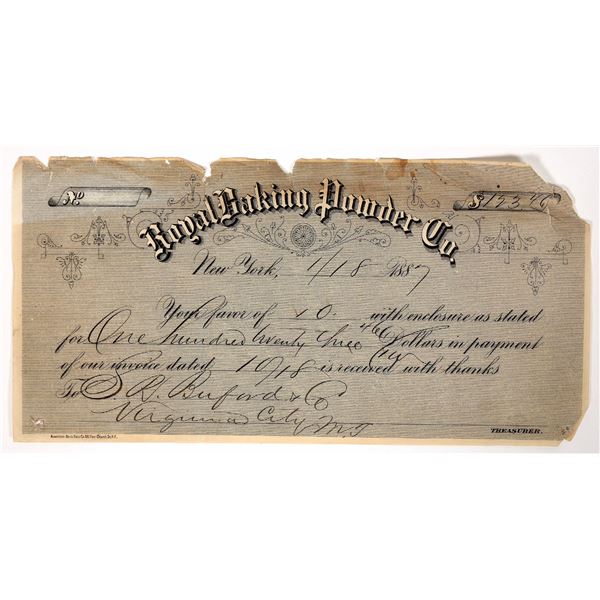 № $123 46
Royal Baking Powder Co.
New York, 1/18 1887
Your favor of 10. with enclosure as stated
for One hundred twenty three 46/100 Dollars in payment
of our invoice dated 10/18 is received with thanks
To S. R. Buford & Co
Virginia City
M.T
TREASURER.